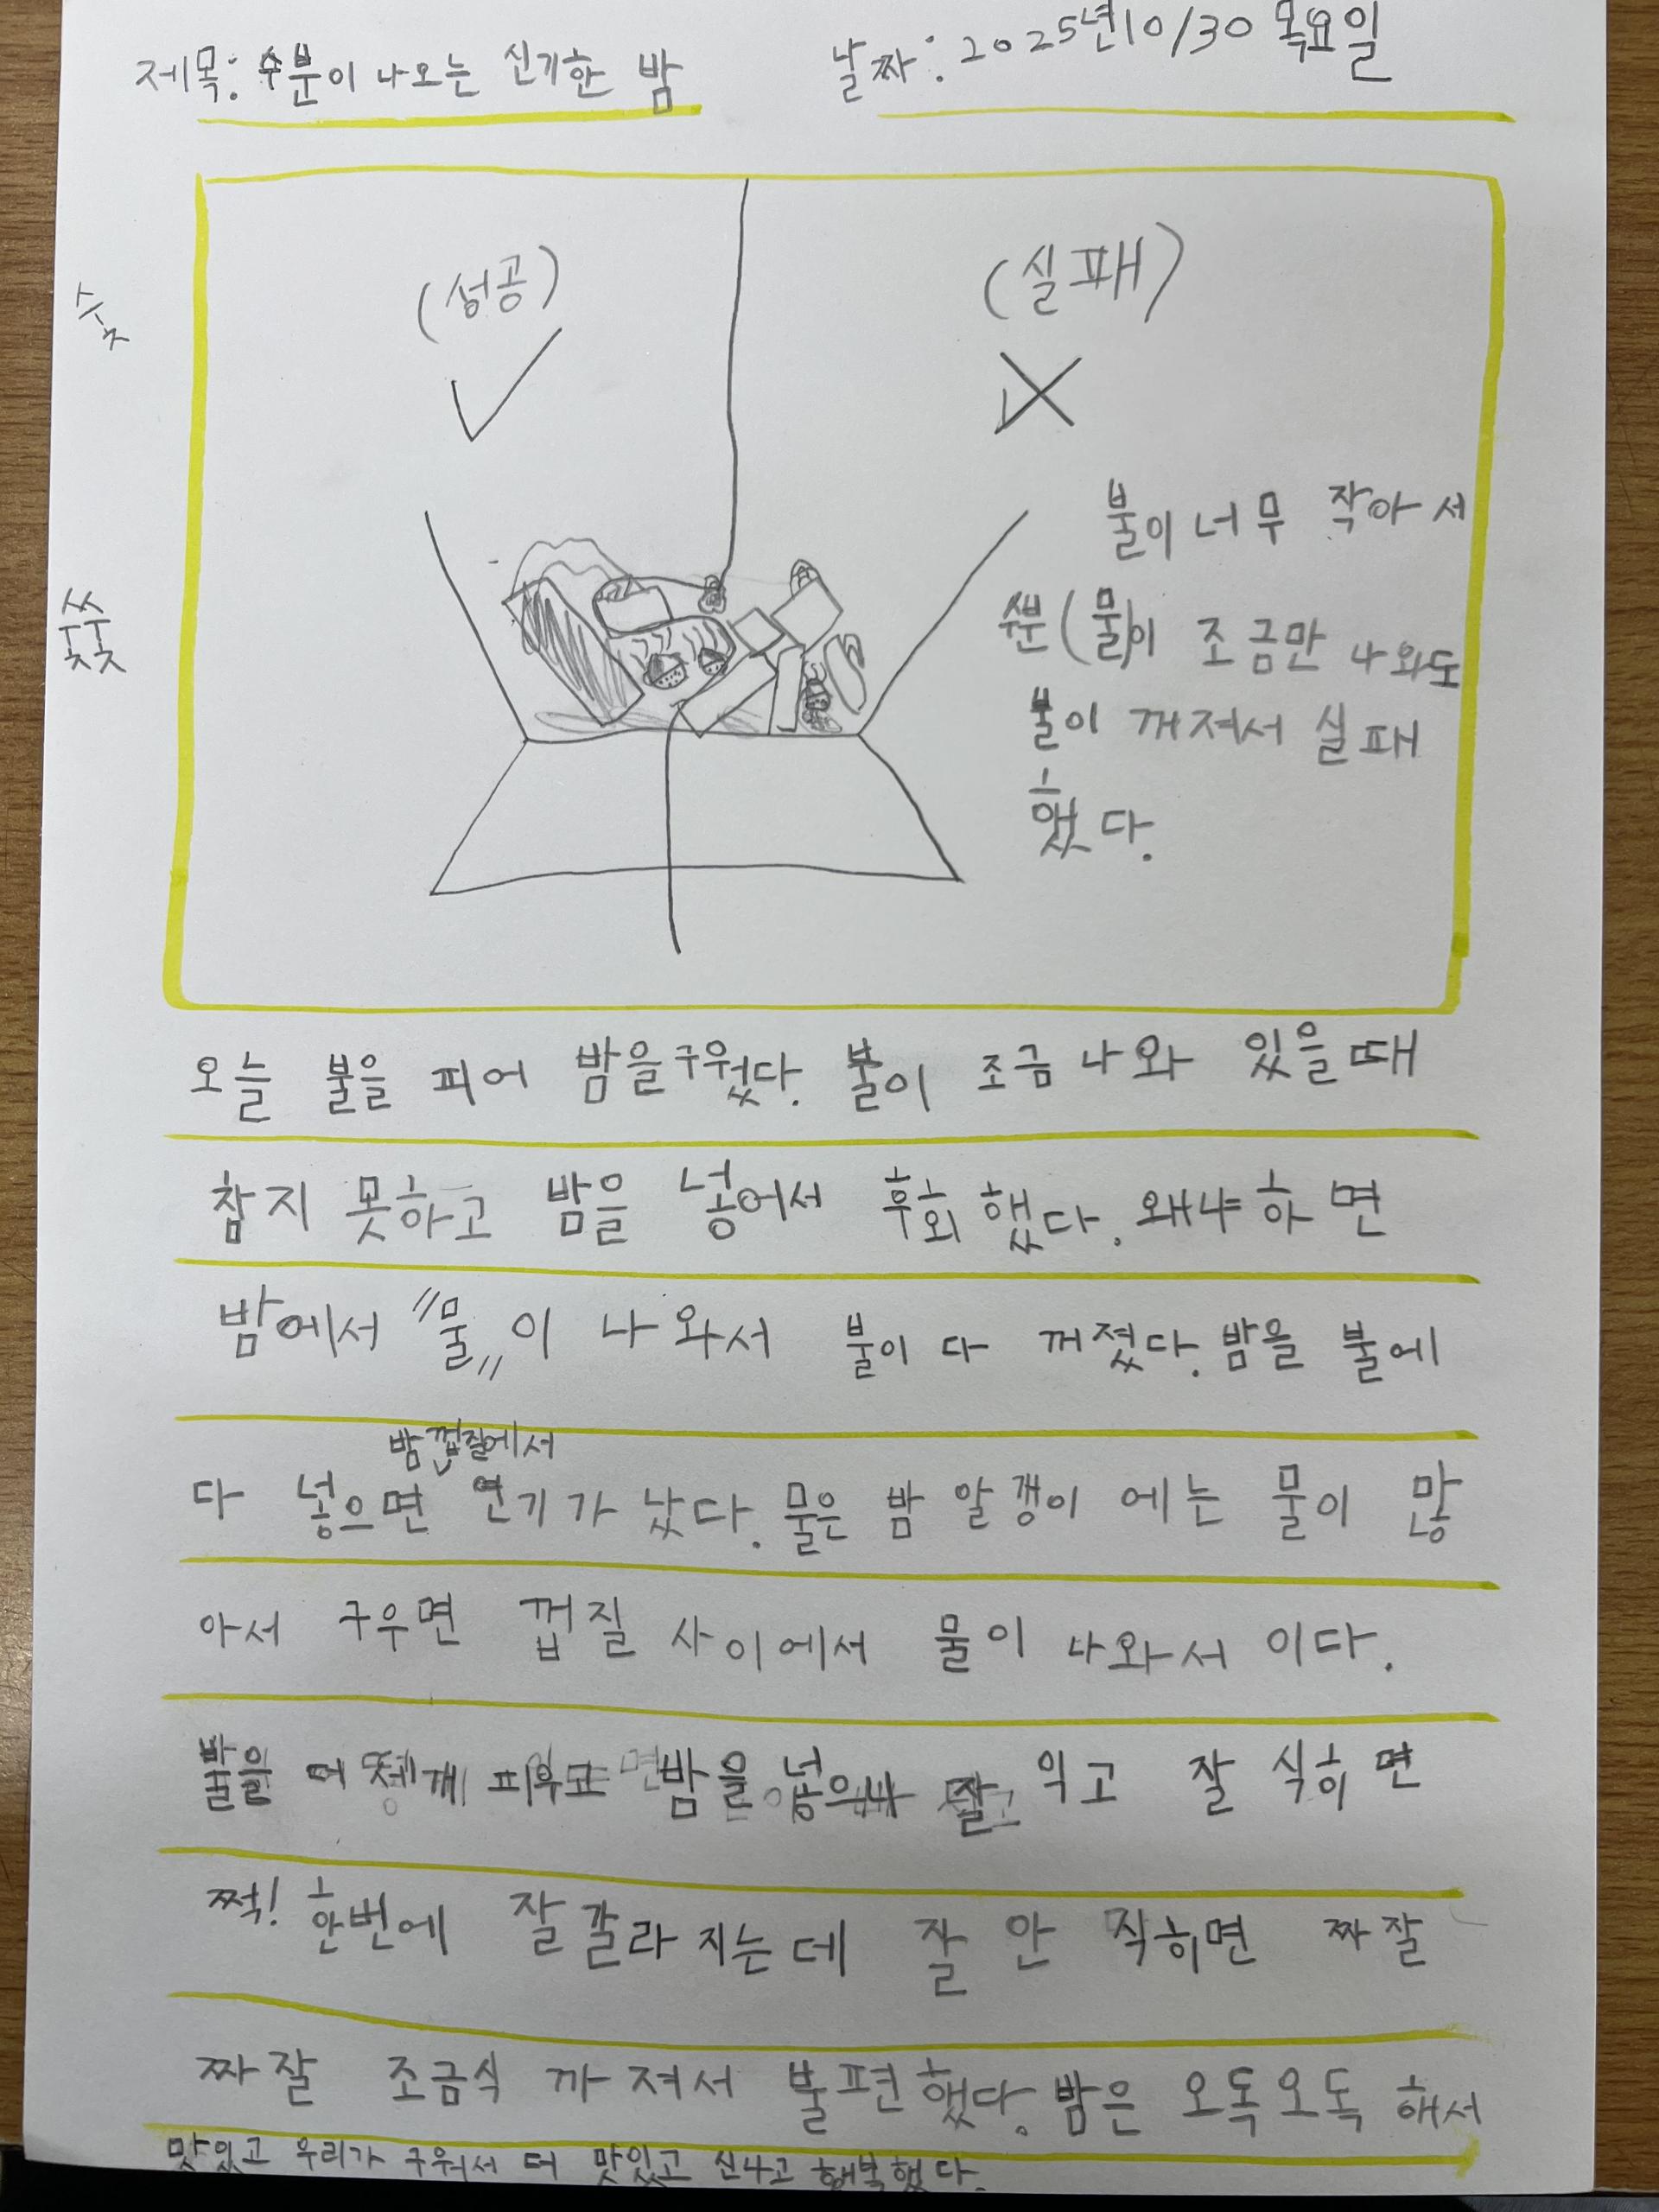 제목: 수분이 나오는 신기한 밤
날짜: 2025년10/30 목요일
(성공)
(실패)
숯
쑻
불이 너무 작아서
수분(물)이 조금만 나와도
불이 꺼져서 실패
했다.
오늘 불을 피어 밤을구웠다. 불이 조금 나와 있을때
참지 못하고 밤을 넣어서 후회했다. 왜냐하면
밤에서 "물"이 나와서 불이 다 꺼졌다. 밤을 불에
밤껍질에서
다 넣으면 연기가 났다. 물은 밤 알갱이 에는 물이 많
아서 구우면 껍질 사이에서 물이 나와서 이다.
불을 피우고 밤을 잘 익고 잘 식히면
쩍! 한번에 잘갈라지는데 잘 안 식히면 짜잘
짜잘 조금식 까져서 불편했다. 밤은 오독오독 해서
맛있고 우리가 구워서 더 맛있고 신나고 행복했다.